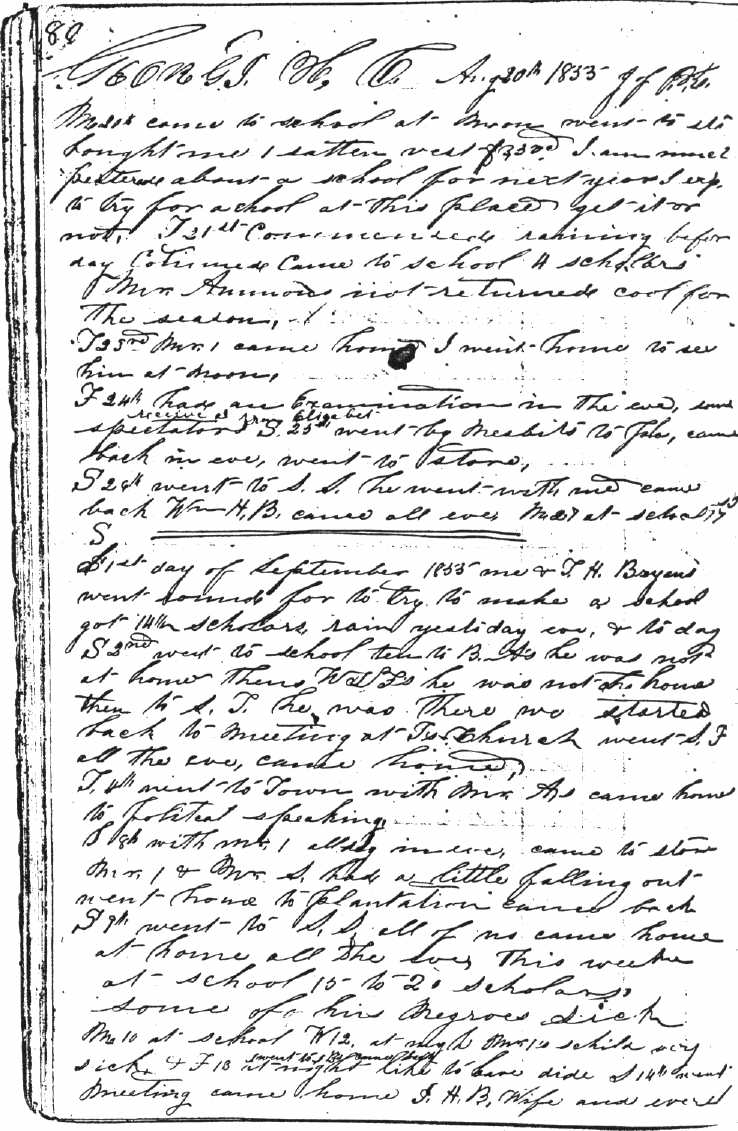 89
Aug 20th 1855
M. 20th came to school at Noon went to sto
bought me 1 satten vest I am much
pestered about a school for next year I exp.
to try for a school at this place get it or
not, T 21st Commenced raining befor
day Came to school 4 scholars
Mr. not returned cool for
the season,
T 23rd Mr. 1 came home I went home to see
him at Noon,
F 24th had an Examination in the eve, some
received from Elizabet
spectators S. 25th went by Nesbits to came
back in eve, went to store,
S 26th went to S. S. he went with me came
back Wm H. B. came all eve, at school
S
1st day of September 1855 me & J. H. Bayens
went round for to try to make a school
got 14 scholars, rain yestiday eve, & to day
S 2nd went to school ten to B. As he was not
at home then he was not home
then to S. T. he was there we started
back to Meeting at Church went S. F
all the eve, came home,
T. 4th went to Town with Mr. As came home
to politcal speaking
S 8th with Mr. 1 all day in eve, came to store
Mr. 1 & Mr. S. had a little falling out
went home to plantation came back
S 9th went to S. S. all of us came home
at home all the eve, This weeke
at school 15 to 20 scholars
some of his Negroes sick
Mo 10 at school W 12, at nigh Mr. 1s child very
went to came back
sick & F 13 at night like to have dide S 14th went
Meeting came home J. H. B, Wife and